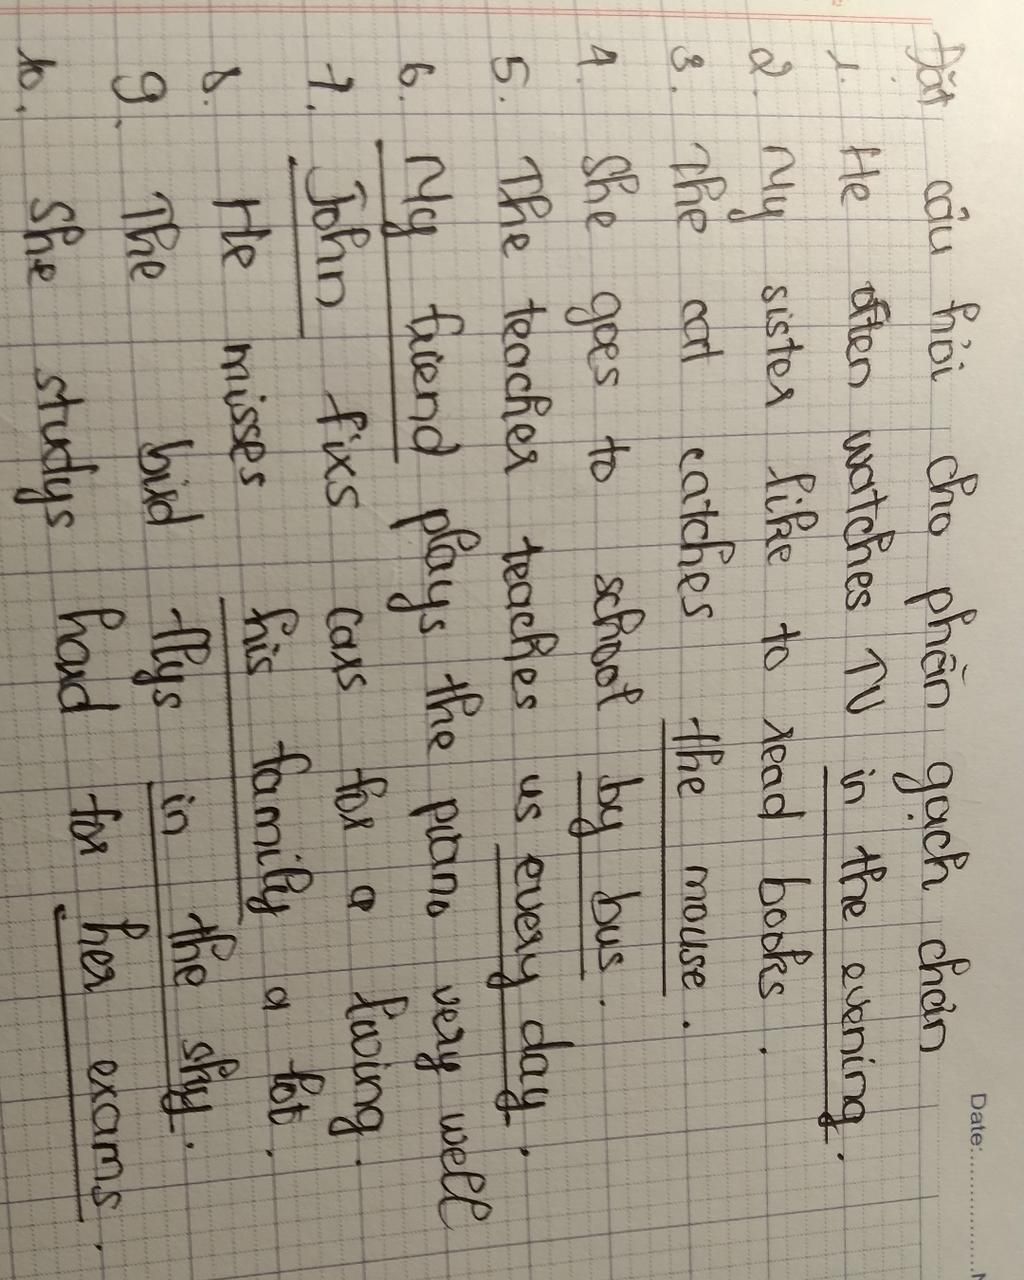 Date:
Đặt câu hỏi cho phần gạch chân
1. He often watches TV in the evening.
2. My sister like to read books.
3. The cat catches the mouse.
4. She goes to school by bus.
5. The teacher teaches us every day.
6. My friend plays the piano very well
7. John fixs cars for a living.
8. He misses his family a lot.
9. The bird flys in the sky.
10. She studys hard for her exams.